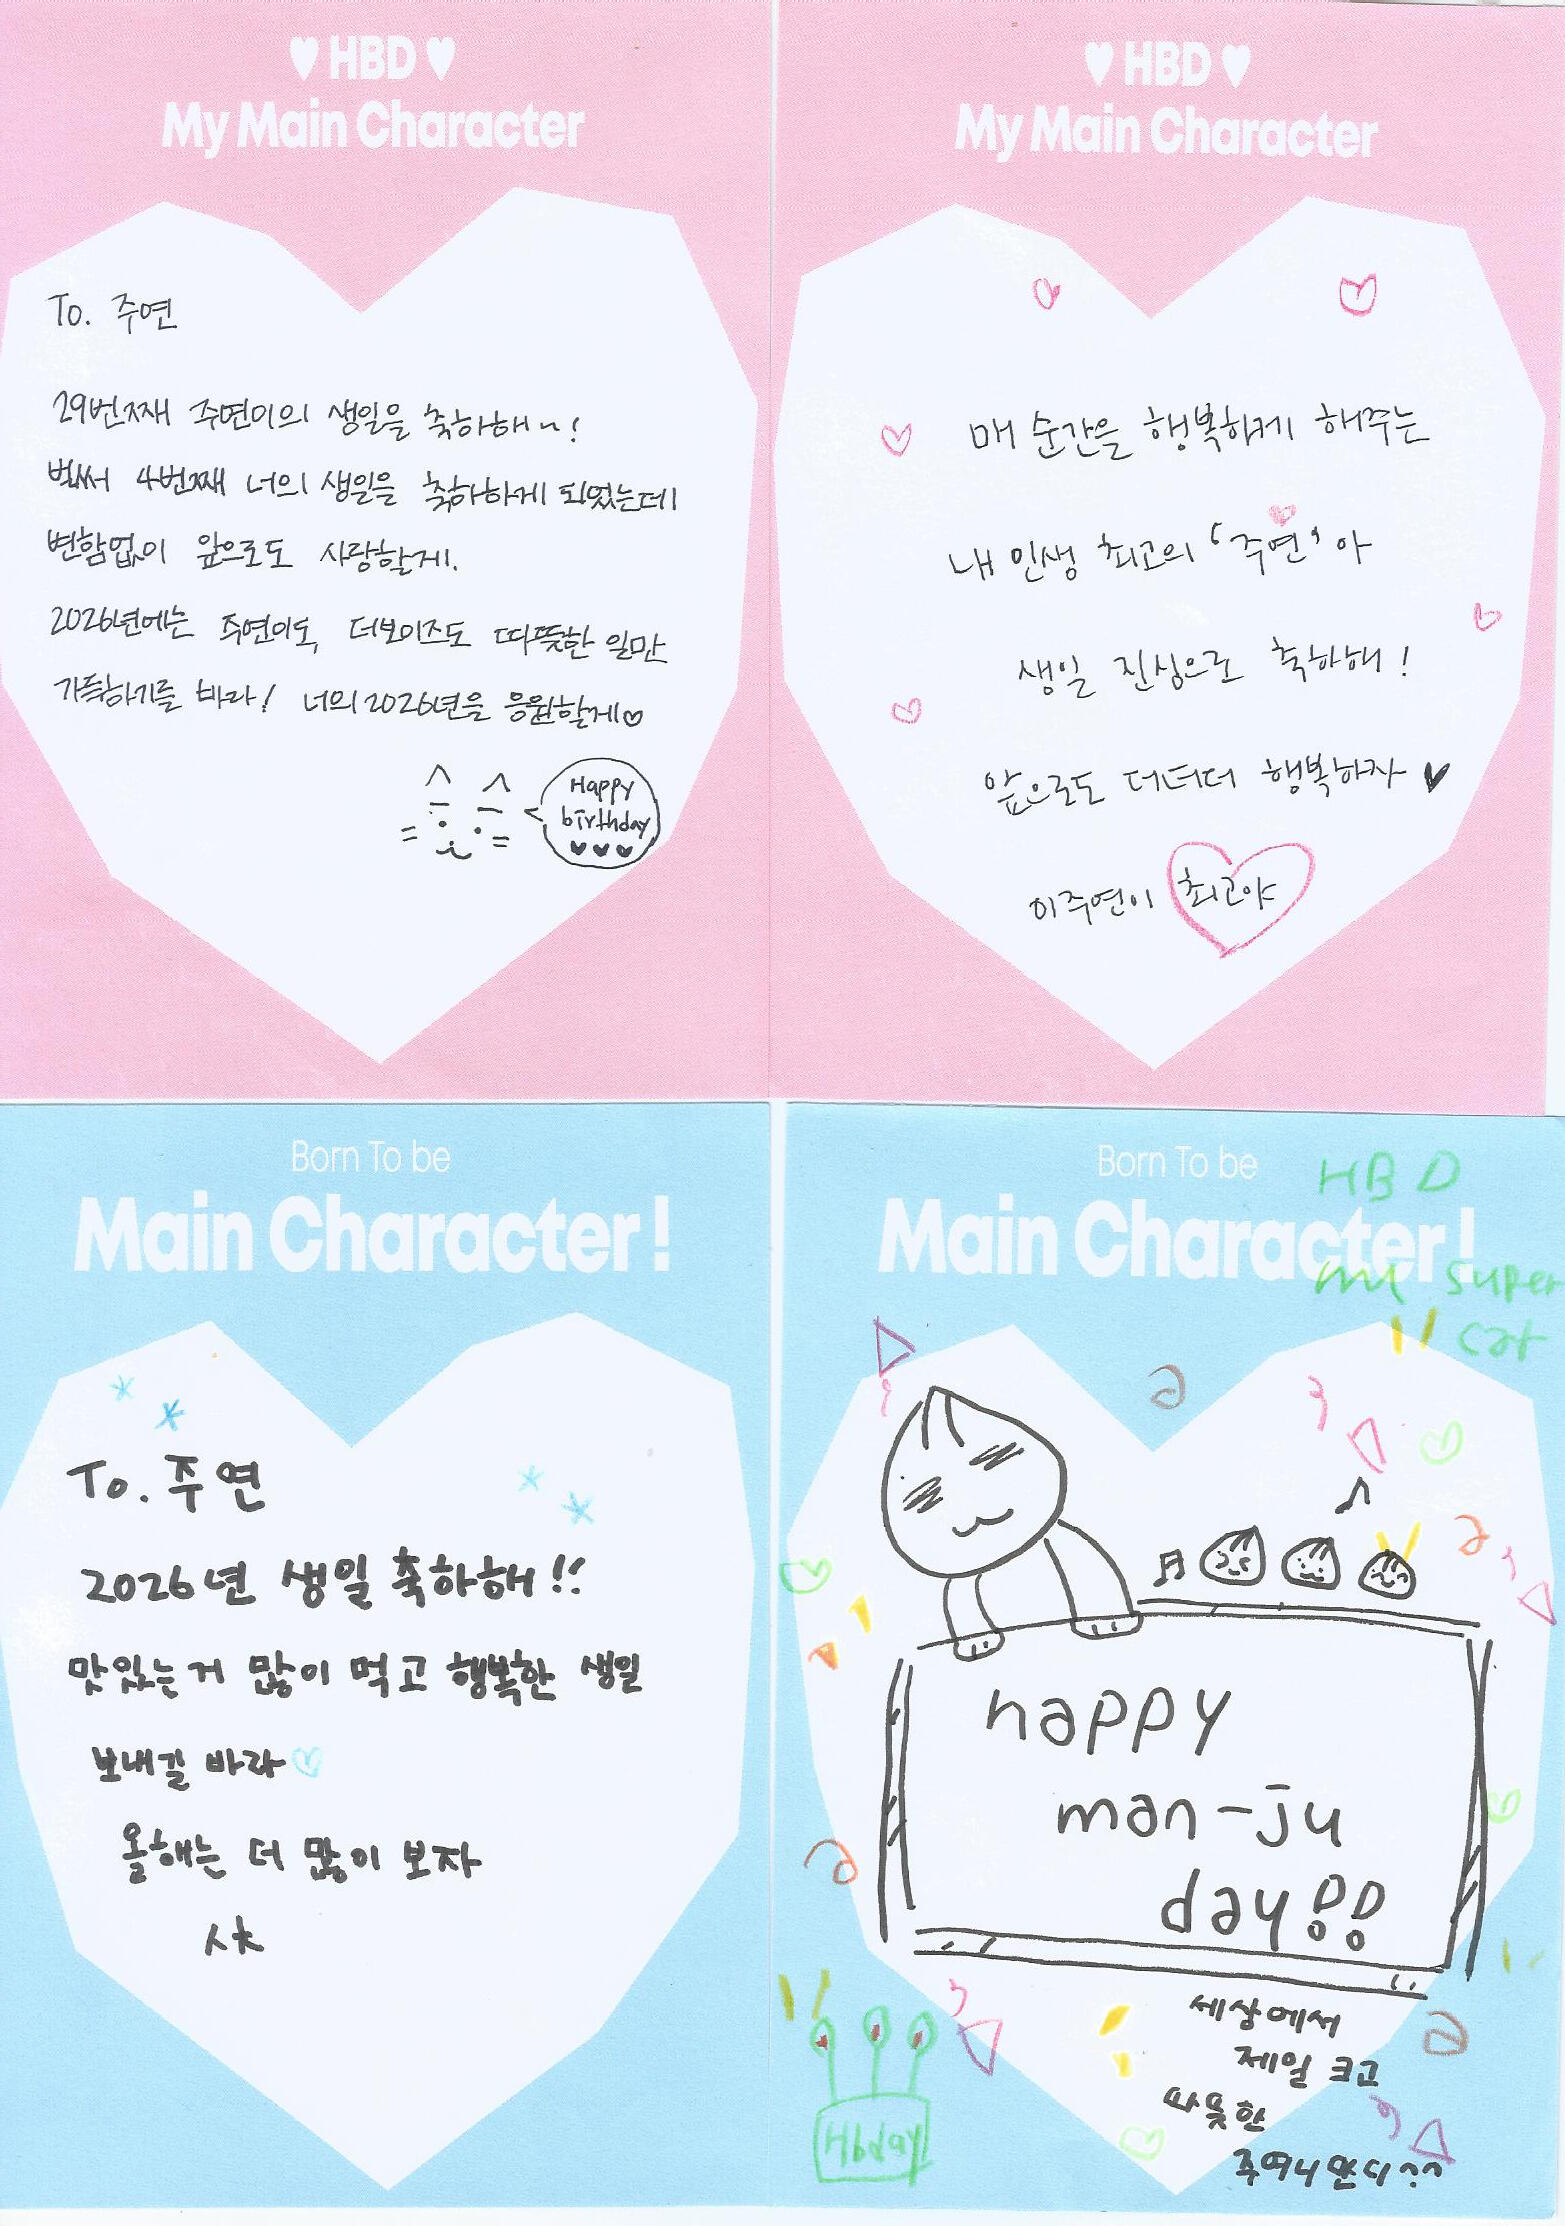 ♥ HBD ♥
My Main Character
To. 주연
29번째 주연이의 생일을 축하해~!
벌써 4번째 너의 생일을 축하하게 되었는데
변함없이 앞으로도 사랑할게.
2026년에는 주연이도, 더보이즈도 따뜻한 일만
가득하기를 바라! 너의 2026년을 응원할게♡
Happy
birthday
♥♥♥
♥ HBD ♥
My Main Character
매 순간을 행복하게 해주는
내 인생 최고의 '주연'아
생일 진심으로 축하해!
앞으로도 더더더 행복하자 ♥
이주연이 최고야
Born To be
Main Character!
To. 주연
2026년 생일 축하해!!
맛있는거 많이 먹고 행복한 생일
보내길 바라♡
올해는 더 많이 보자
Born To be
Main Character!
HBD
my super
cat
happy
man-ju
day!!
세상에서
제일 크고
따뜻한
Hbday